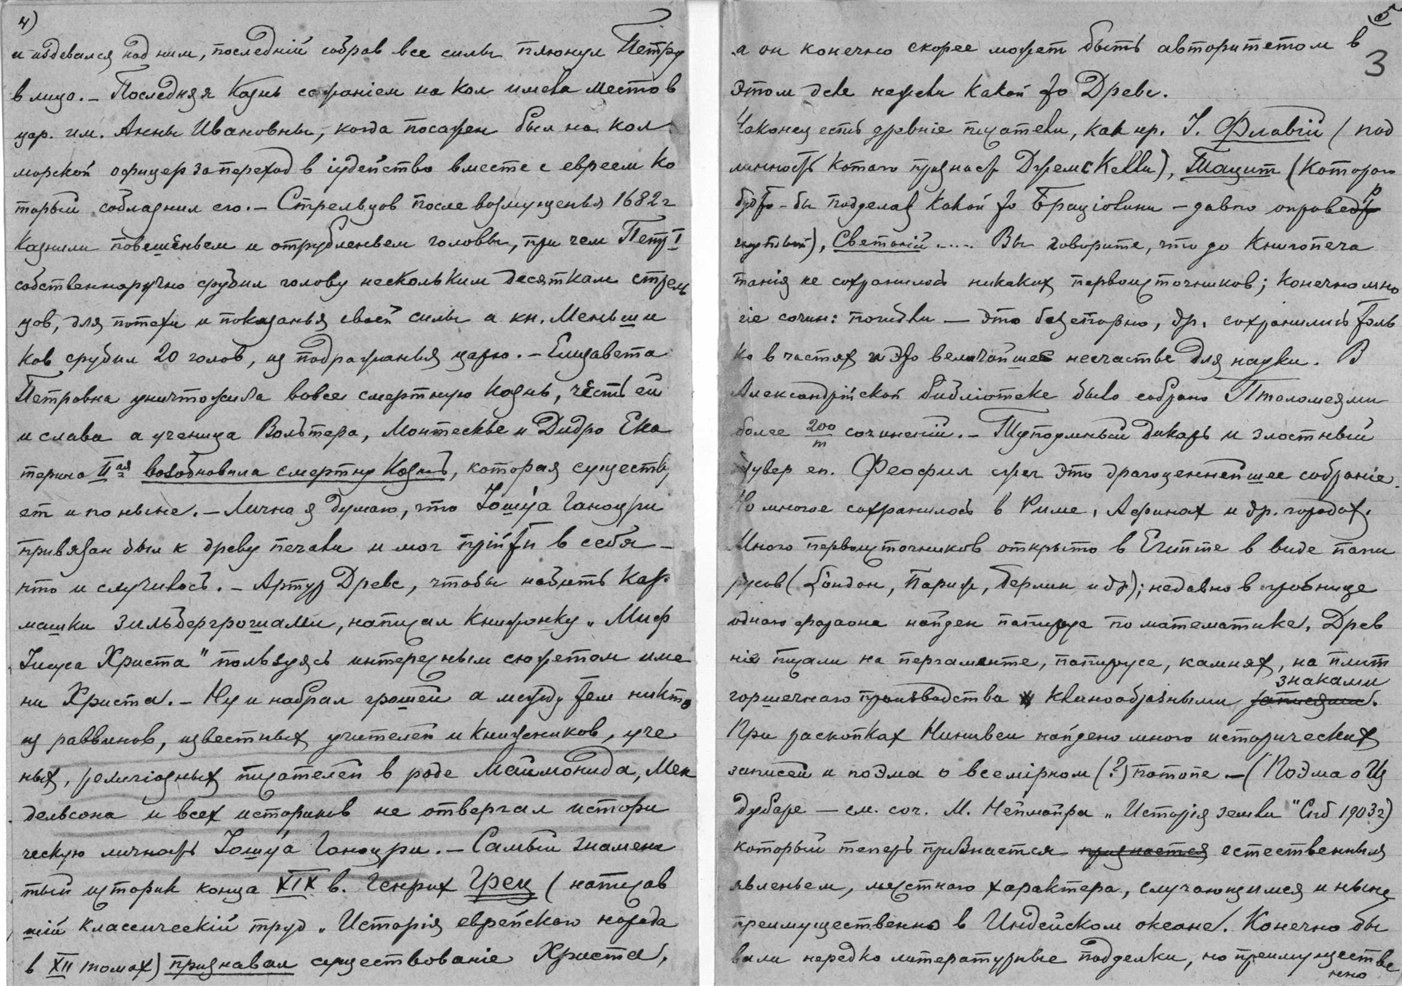 4)
и издевался над ним, последній собрав все силы плюнул Петру
в лицо. – Последняя казнь сажаніем на кол имела место в
цар. им. Анны Ивановны, когда посажен был на кол
морской офицер за переход в іудейство вместе с евреем ко
торый соблазнил его. – Стрельцов после возмущенья 1682 г
казнили повешеньем и отрубленьем головы, при чем Петр I
собственноручно срубил голову нескольким десяткам стрель
цов, для потехи и показанья своей силы а кн. Меньши
ков срубил 20 голов, из подражанья царю. – Елизавета
Петровна уничтожила вовсе смертную казнь, честь ей
и слава а ученица Вольтера, Монтескье и Дидро Ека
терина II ая возобновила смертну казнь, которая существу
ет и по ныне. – Лично я думаю, что Іошуа Ганоцри
привязан был к древу печали и мог прійти в себя –
что и случилось. – Артур Древс, чтобы набить кар
машки зильбергрошами, написал книжонку „Миф
Іисуса Христа" пользуясь интересным сюжетом име
ни Христа. – Ну и набрал грошей а между тем никто
из раввинов, известных учителей и книжников, уче
ных, религіозных писателей в роде Маймонида, Мен
дельсона и всех историков не отвергал истори
ческую личность Іошуа Ганоцри. – Самый знамени
тый историк конца XIX в. Генрих Грец (написав
шій классическій труд „Исторія еврейскаго народа
в XII томах) признавал существованіе Христа,
5
3
а он конечно скорее может быть авторитетом в
этом деле нежели какой то Древс.
Наконец есть древніе писатели, как нр. І. Флавій (под
линность котораго признает Дремс Келли), Тацит (котораго
будто-бы подделал какой то Браціолини – давно опроверг
), Светоній .... Вы говорите, что до книгопеча
танія не сохранилось никаких первоисточников; конечно мно
гіе сочин: погибли – это безспорно, др. сохранились толь
ко в частях и это величайшее несчастье для науки. В
Александрійской библіотеке было собрано Птоломеями
более 200 т сочиненій. – Тупоумный дикарь и злостный
изувер еп. Феофил сжег это драгоценнейшее собраніе.
Но многое сохранилось в Риме, Афинах и др. городах.
Много первоисточников открыто в Египте в виде папи
русов (Лондон, Париж, Берлин и др); недавно в гробнице
одного фараона найден папирус по математике. Древ
ніе писали на пергаменте, папирусе, камнях, на плит
знаками
горшечнаго производства клинообразными записями.
При раскопках Ниневеи найдено много исторических
записей и поэма о всемірном (?) потопе – (Поэма о Из
дубаре – см. соч. М. Неймайра „Исторія земли" Спб 1903 г)
который теперь признается признается естественным
явленьем, местнаго характера, случающимся и ныне
преимущественно в Индейском океане. Конечно бы
вали нередко литературные подделки, но преимуществе
нно